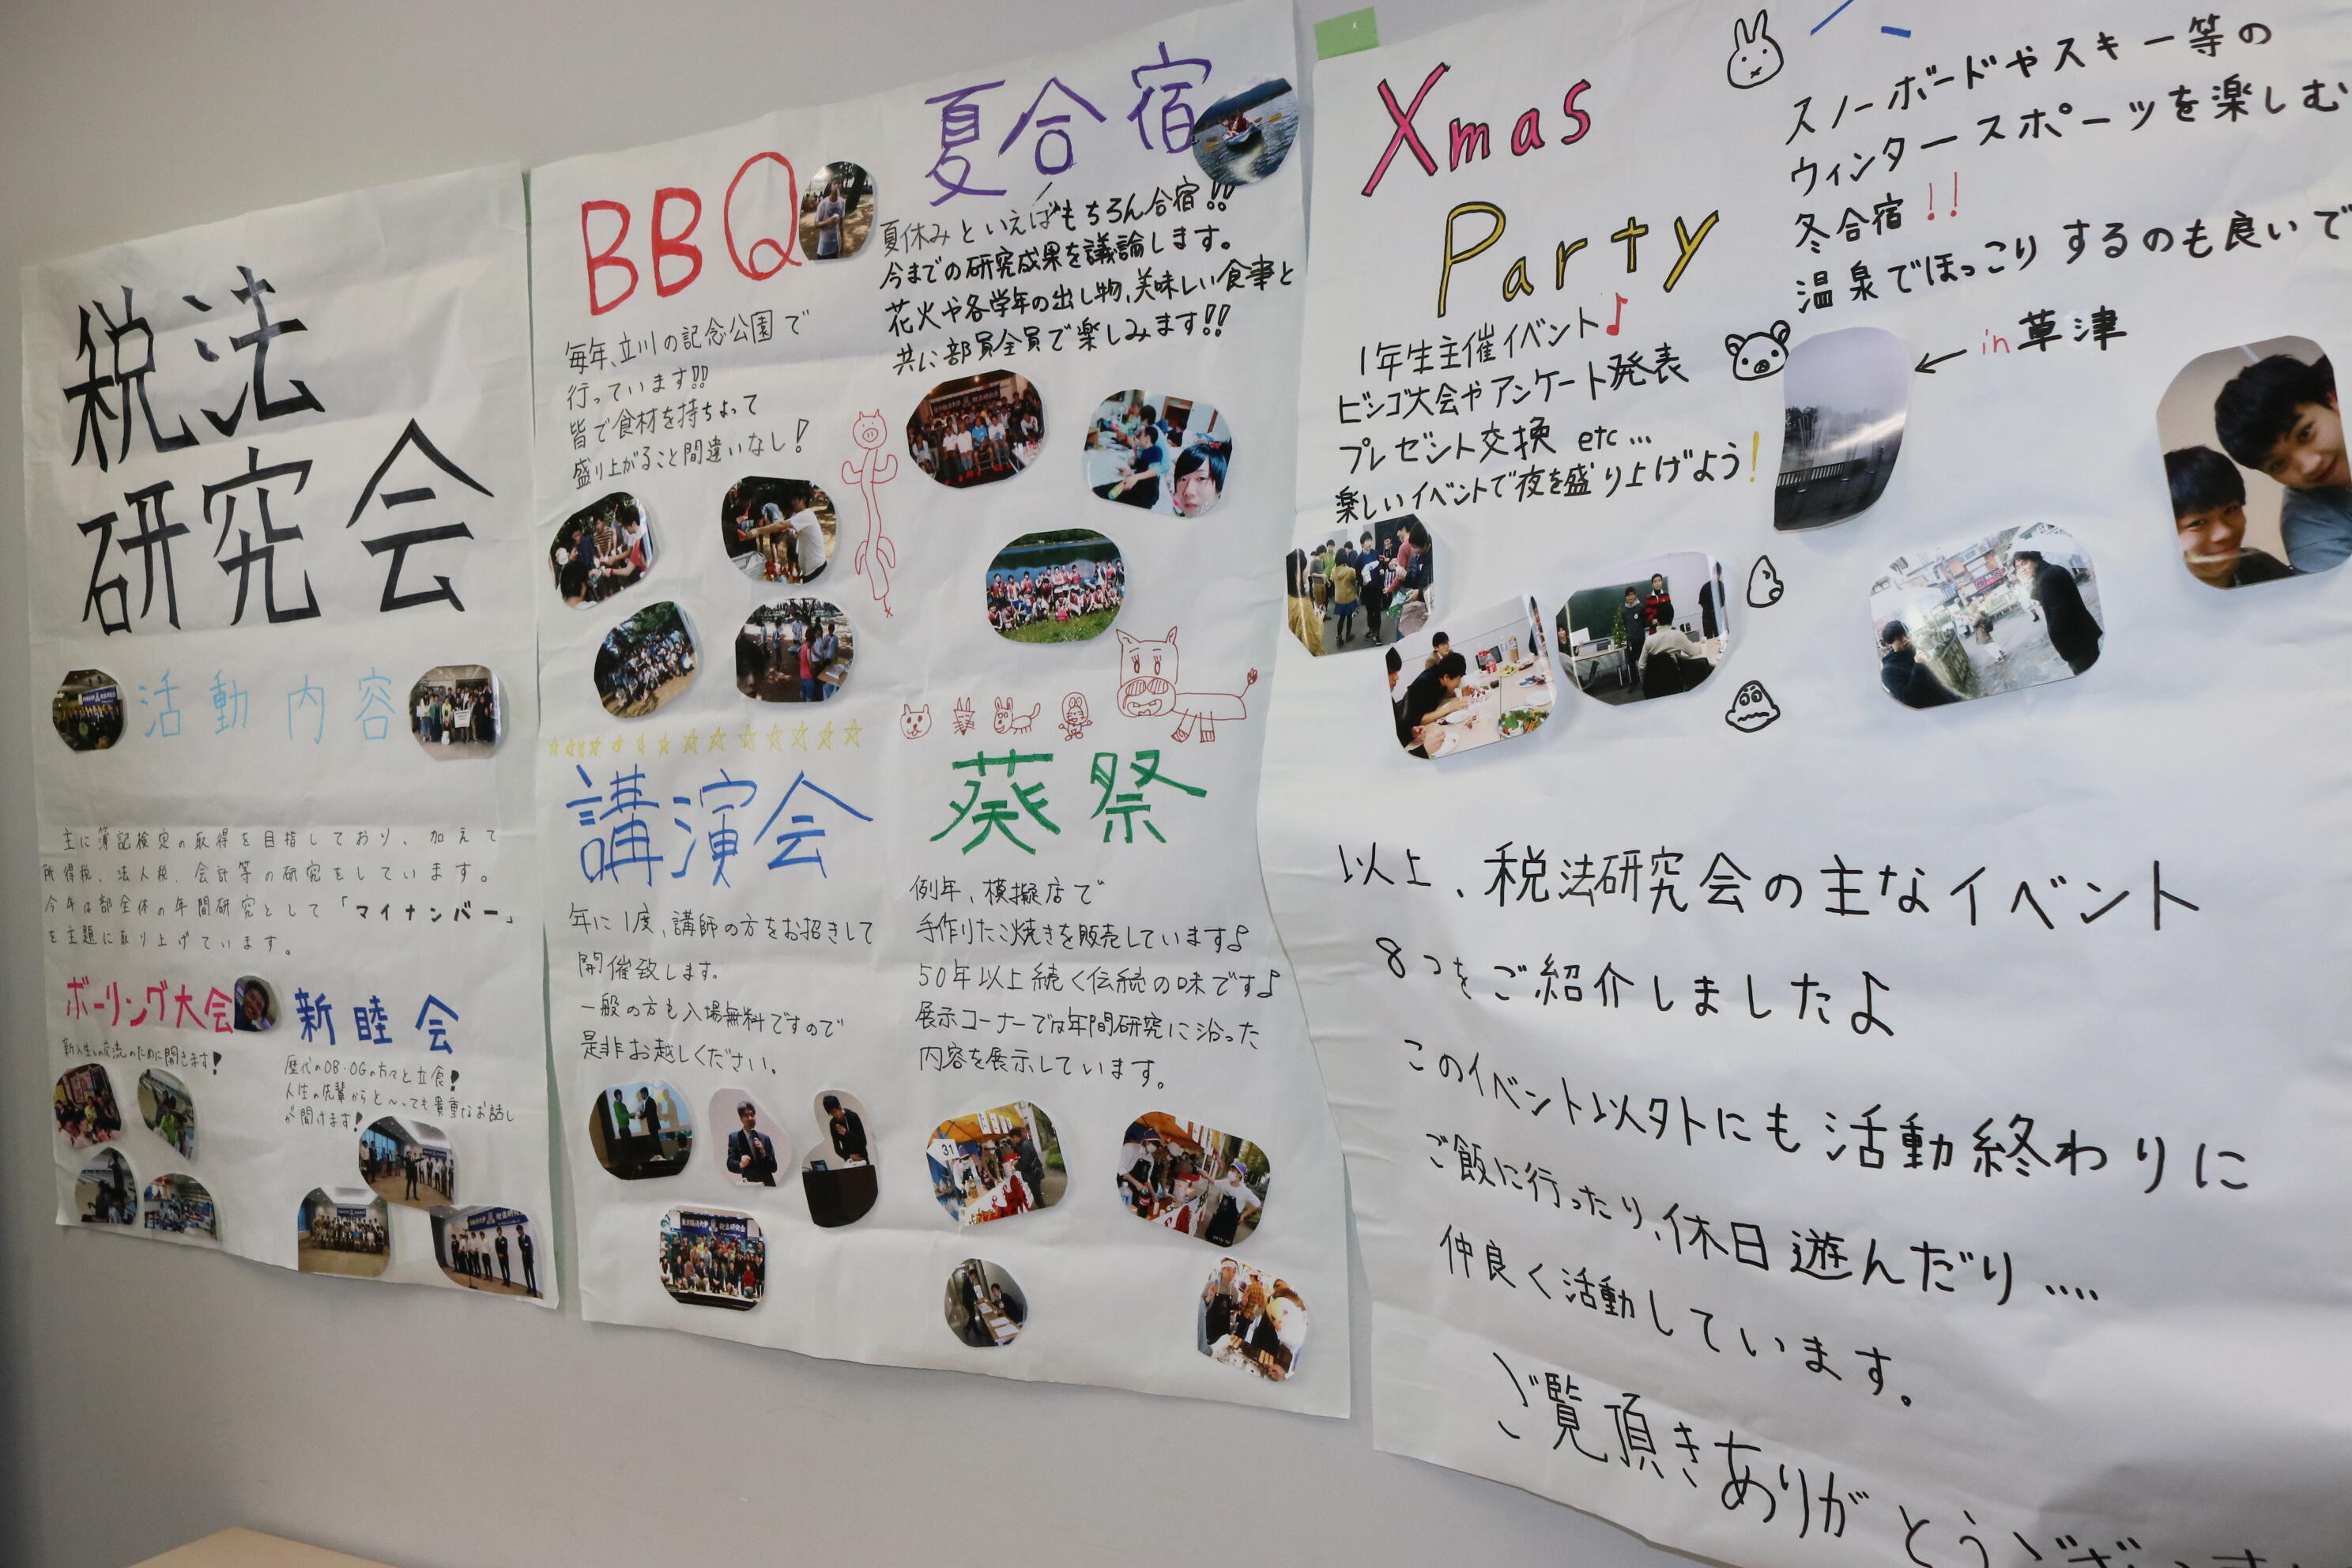 税法
研究会
活動内容
主に簿記検定の取得を目指しており、加えて
所得税、法人税、会計等の研究をしています。
今年は部全体の年間研究として「マイナンバー」
を主題に取り上げています。
ボーリング大会
新入生との交流のために開きます!
新睦会
歴代のOB・OGの方々と立食!
人生の先輩からと〜っても貴重なお話し
が聞けます!
BBQ
毎年、立川の記念公園で
行っています!!
皆で食材を持ちよって
盛り上がること間違いなし!
夏合宿
夏休みといえばもちろん合宿!!
今までの研究成果を議論します。
花火や各学年の出し物、美味しい食事と
共に部員全員で楽しみます!!
講演会
年に1度、講師の方をお招きして
開催致します。
一般の方も入場無料ですので
是非お越しください。
葵祭
例年、模擬店で
手作りたこ焼きを販売しています♪
50年以上続く伝統の味です♪
展示コーナーでは年間研究に沿った
内容を展示しています。
31
Xmas
Party
1年生主催イベント♪
ビンゴ大会やアンケート発表
プレゼント交換 etc...
楽しいイベントで夜を盛り上げよう!
スノーボードやスキー等の
ウィンタースポーツを楽しむ
冬合宿!!
温泉でほっこりするのも良いで
in草津
以上、税法研究会の主なイベント
8つをご紹介しました♪
このイベント以外にも活動終わりに
ご飯に行ったり、休日遊んだり....
仲良く活動しています。
ご覧頂きありがとうござい